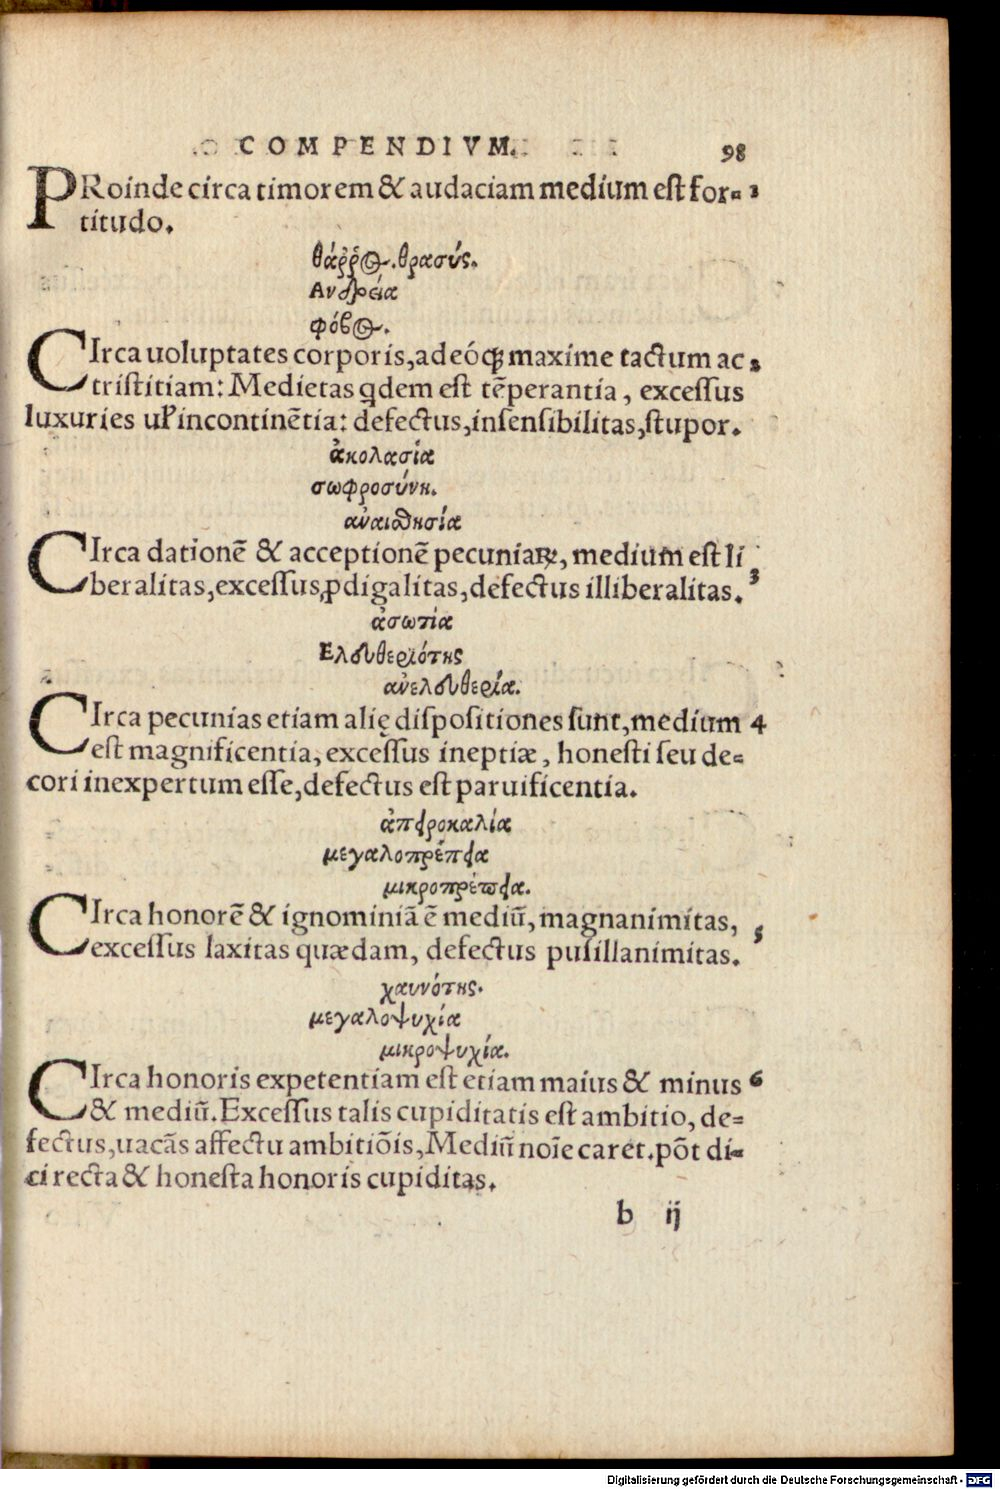 COMPENDIVM. 98
PRoinde circa timorem & audaciam medium est for- 1
titudo.
θάῤῥος. θρασύς.
Ανδρεία
φόβος.
CIrca uoluptates corporis, adeóq́ꝫ maxime tactum ac 2
tristitiam: Medietas qdem est tēperantia, excessus
luxuries uł incontinētia: defectus, insensibilitas, stupor.
ἀκολασία
σωφροσύνη.
ἀναισθησία
CIrca dationē & acceptionē pecuniaꝝ, medium est li
beralitas, excessus, ꝓdigalitas, defectus illiberalitas. 3
ἀσωτία
Ελευθεριότης
ἀνελευθερία.
CIrca pecunias etiam alię dispositiones sunt, medium 4
est magnificentia, excessus ineptiæ, honesti seu de-
cori inexpertum esse, defectus est paruificentia.
ἀπειροκαλία
μεγαλοπρέπεια
μικροπρέπεια.
CIrca honorē & ignominiā ē mediū, magnanimitas, 5
excessus laxitas quædam, defectus pusillanimitas.
χαυνότης.
μεγαλοψυχία
μικροψυχία.
CIrca honoris expetentiam est etiam maius & minus 6
& mediū. Excessus talis cupiditatis est ambitio, de-
fectus, uacās affectu ambitiōis, Mediū noīe caret. pōt di-
ci recta & honesta honoris cupiditas.
b ij
Digitalisierung gefördert durch die Deutsche Forschungsgemeinschaft - DFG